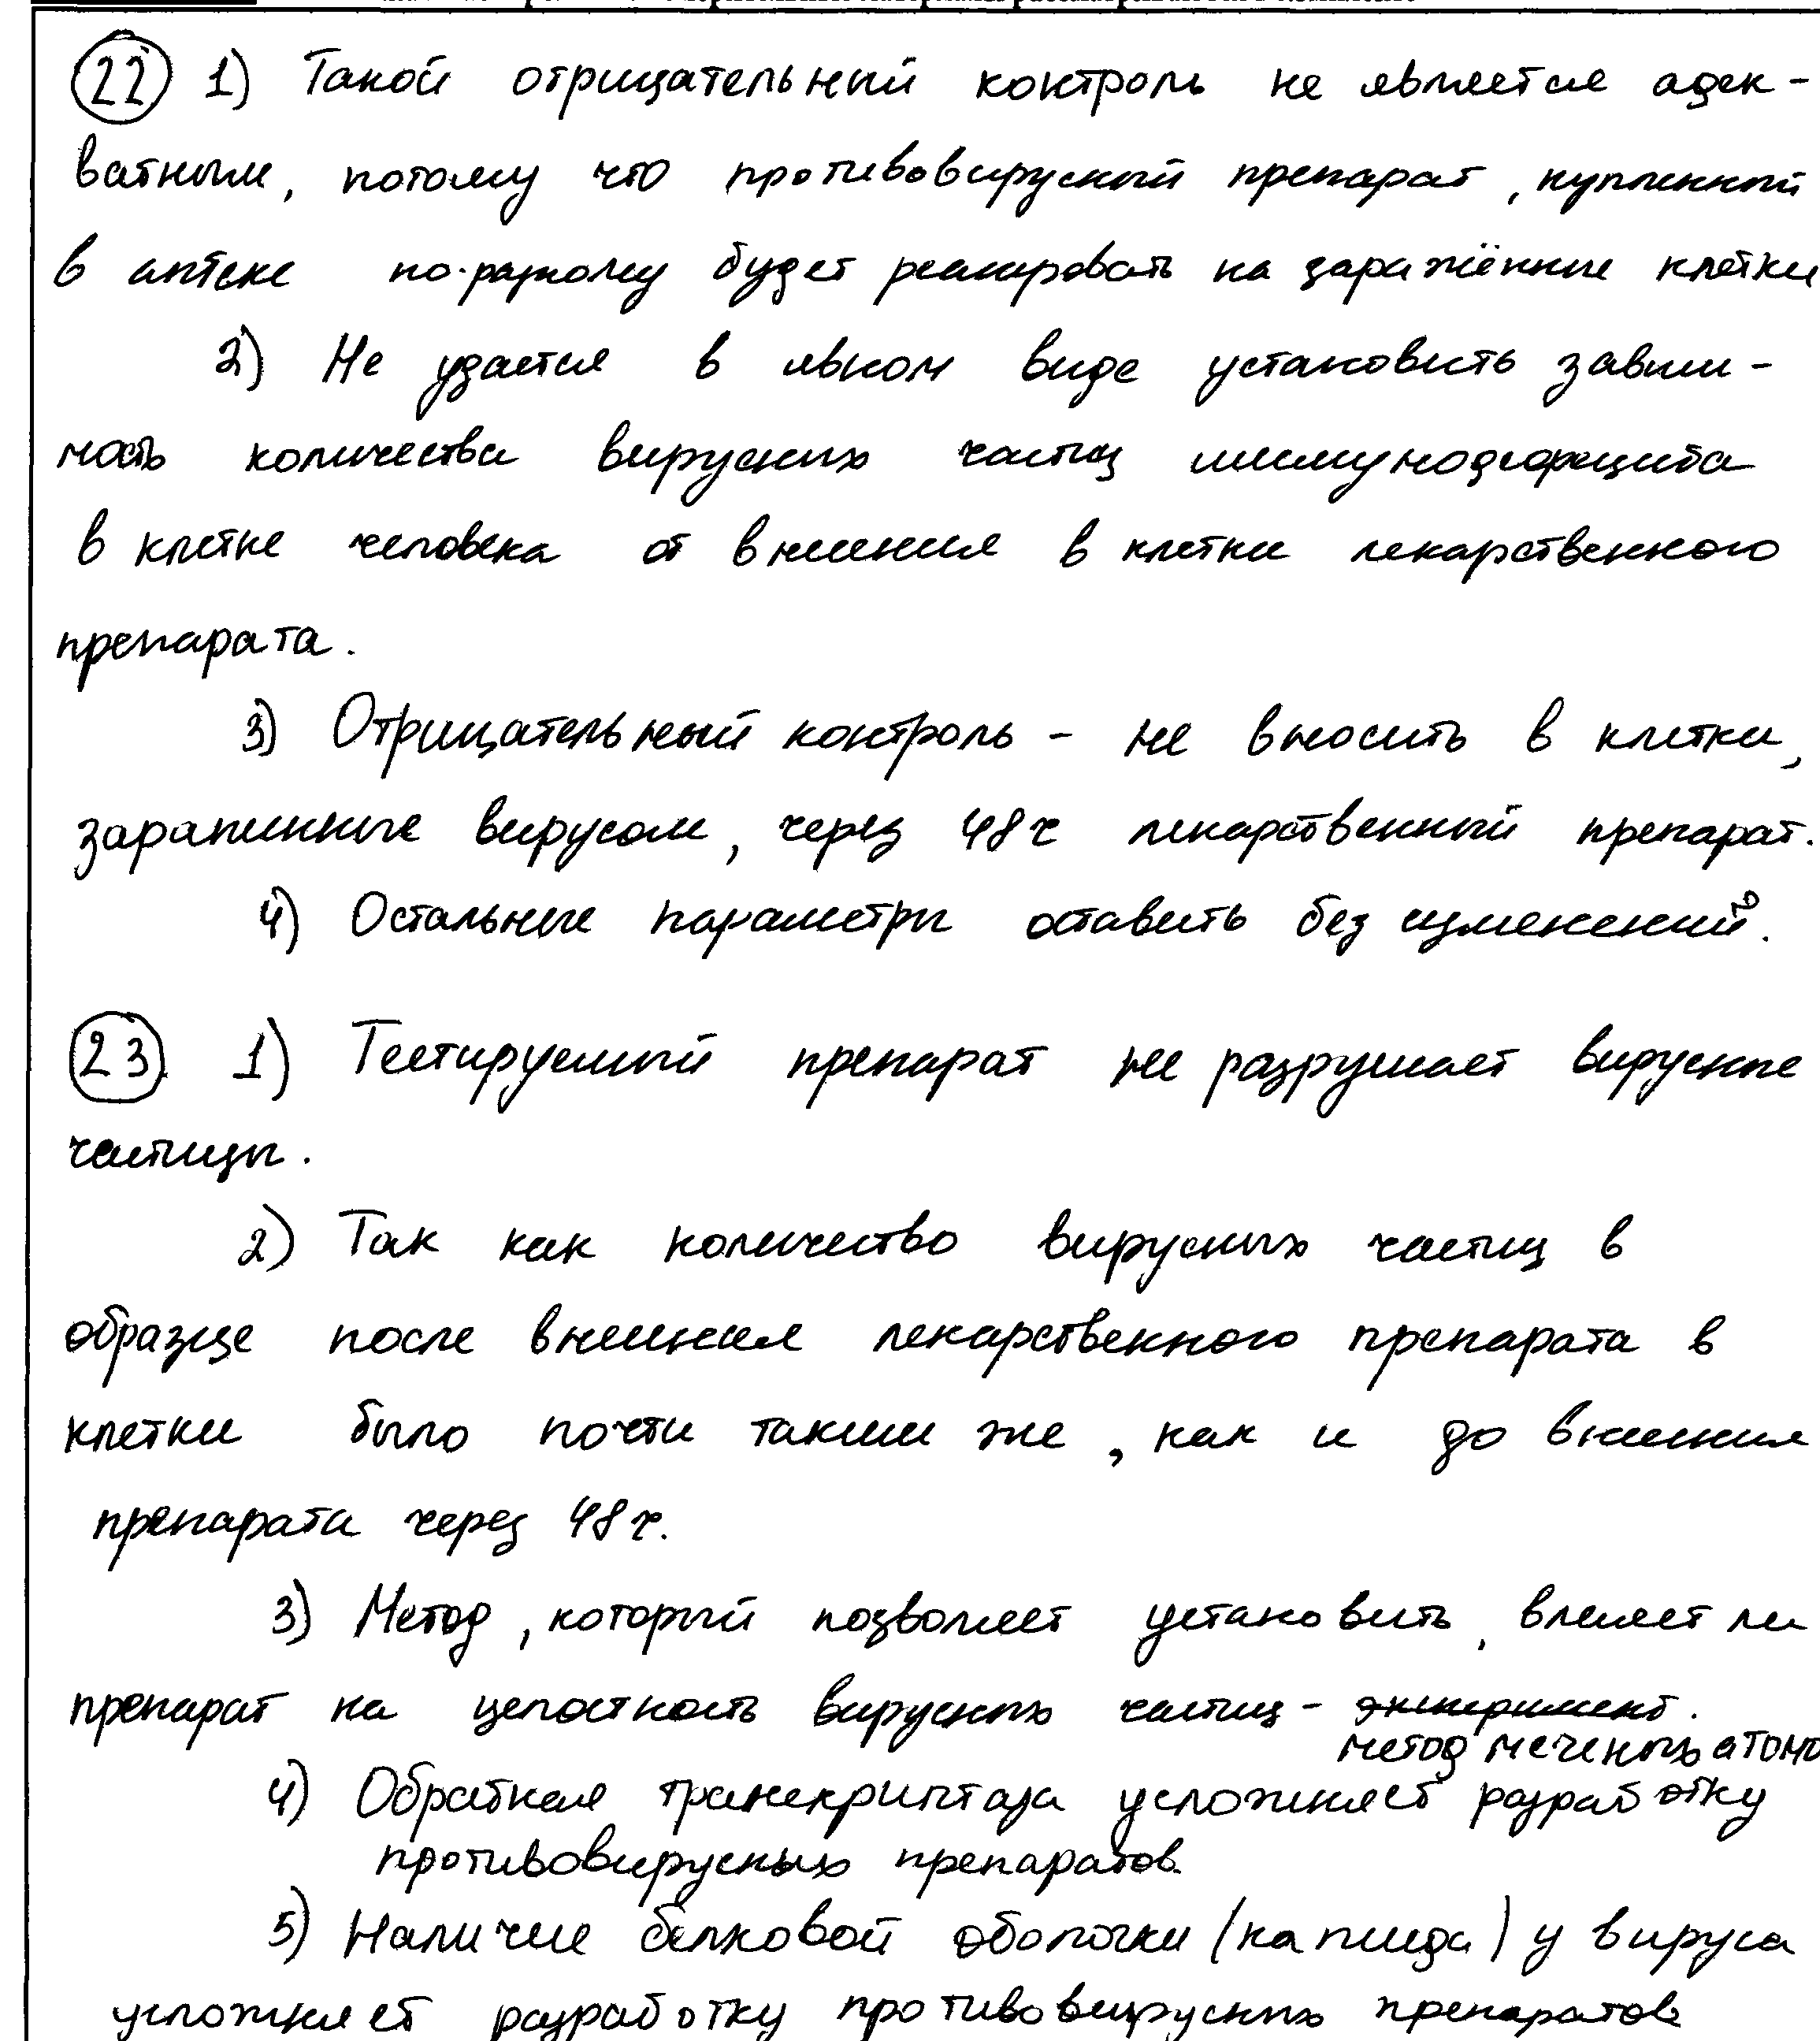 22 1) Такой отрицательный контроль не является адек-
ватным, потому что противовирусный препарат, купленный
в аптеке по-разному будет реагировать на заражённые клетки
2) Не удается в явном виде установить зависи-
мость количества вирусных частиц иммунодефицита
в клетке человека от внесения в клетки лекарственного
препарата.
3) Отрицательный контроль - не вносить в клетки,
зараженные вирусом, через 48 ч лекарственный препарат.
4) Остальные параметры оставить без изменений.
23. 1) Тестируемый препарат не разрушает вирусные
частицы.
2) Так как количество вирусных частиц в
образце после внесения лекарственного препарата в
клетки было почти таким же, как и до внесения
препарата через 48 ч.
3) Метод, который позволяет установить, влияет ли
препарат на целостность вирусных частиц - эксперимент.
метод меченых атомо
4) Обратная транскриптаза усложняет разработку
противовирусных препаратов.
5) Наличие белковой оболочки (капсида) у вируса
усложняет разработку противовирусных препаратов